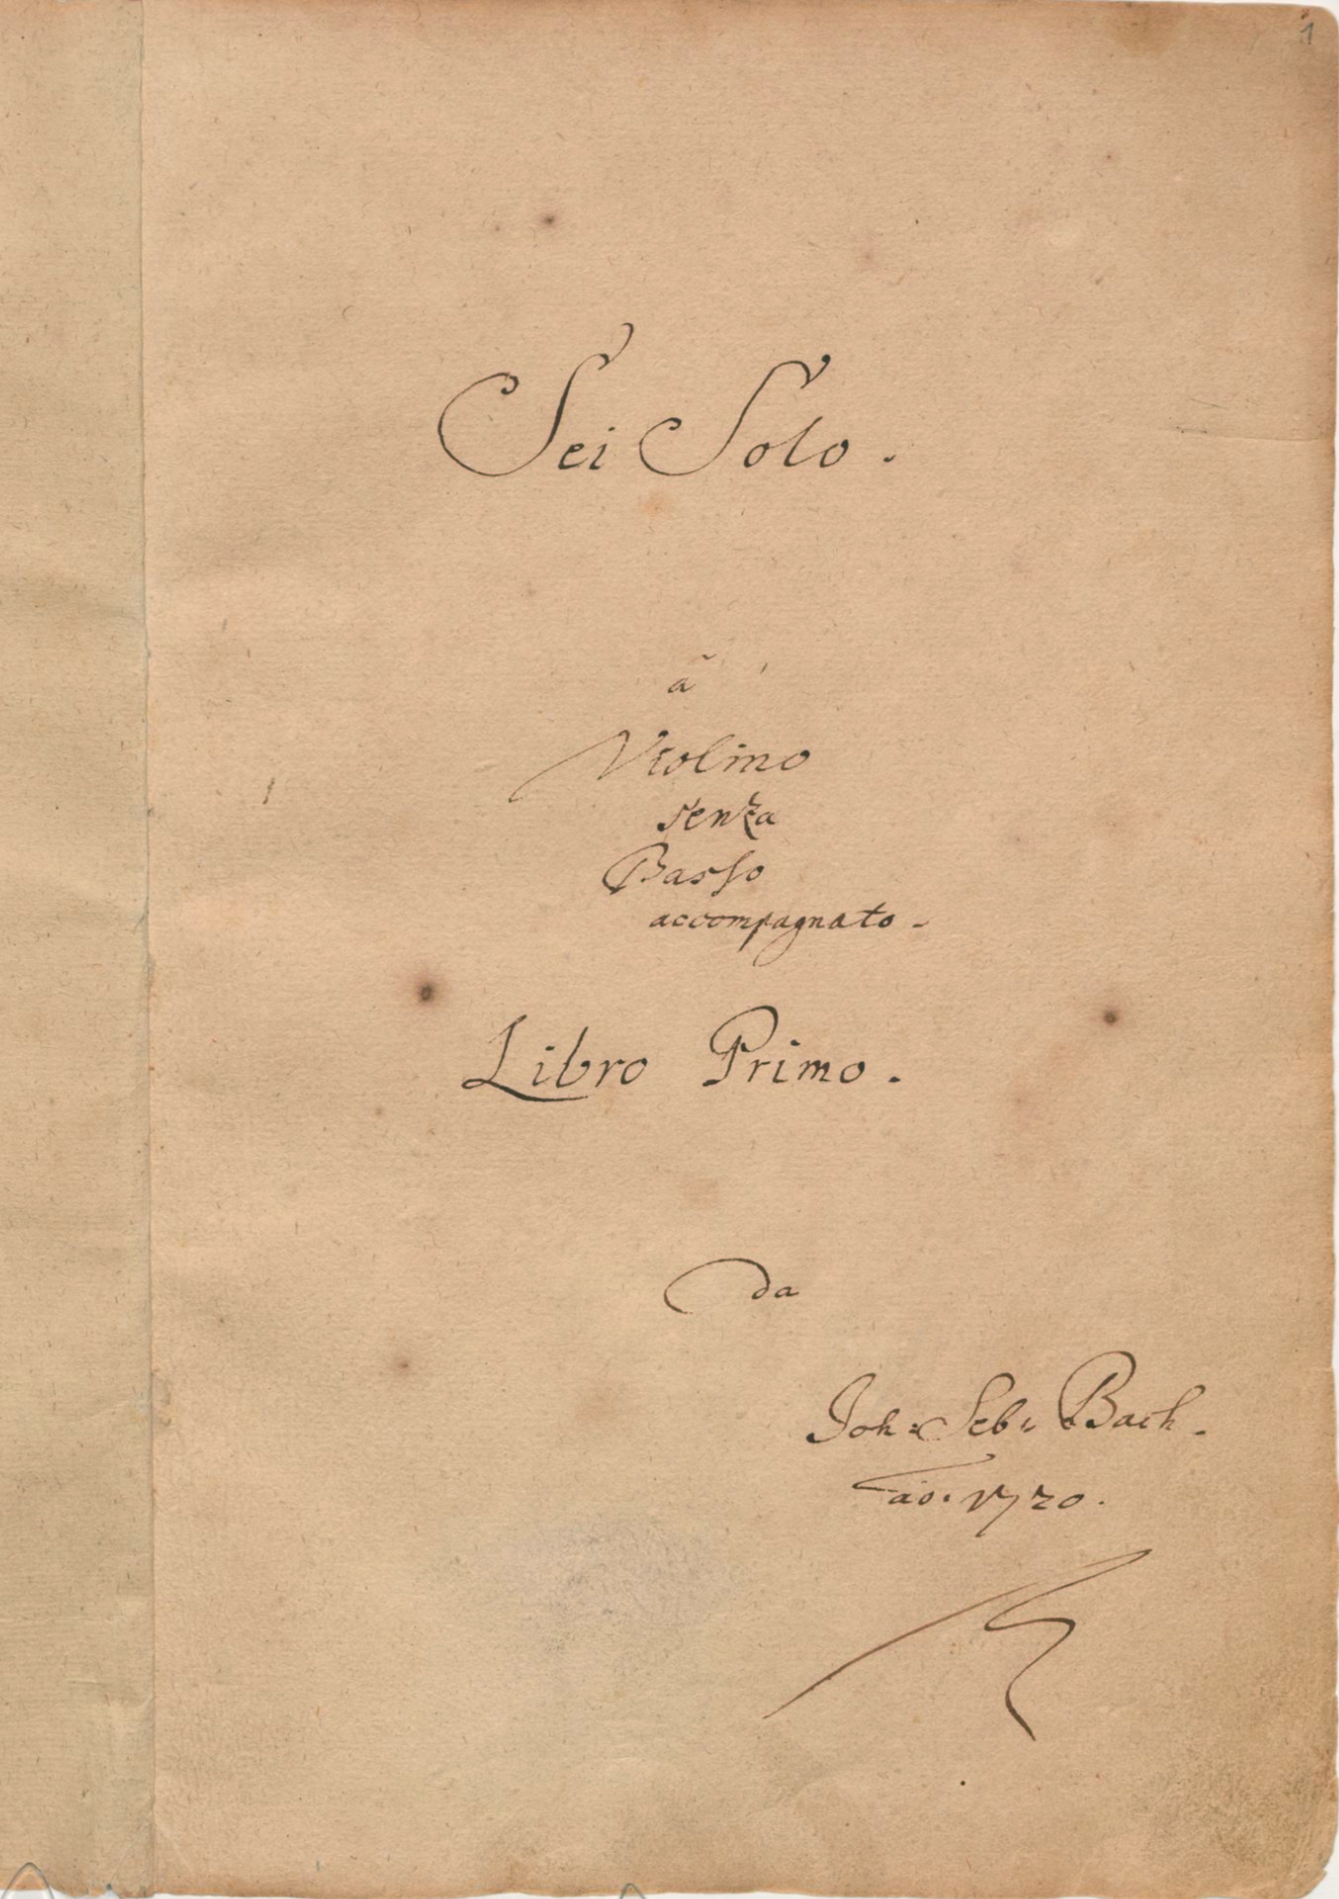 1
Sei Solo.
â
Violino
senza
Basso
accompagnato.
Libro Primo.
da
Joh: Seb: Bach.
aõ. 1720.